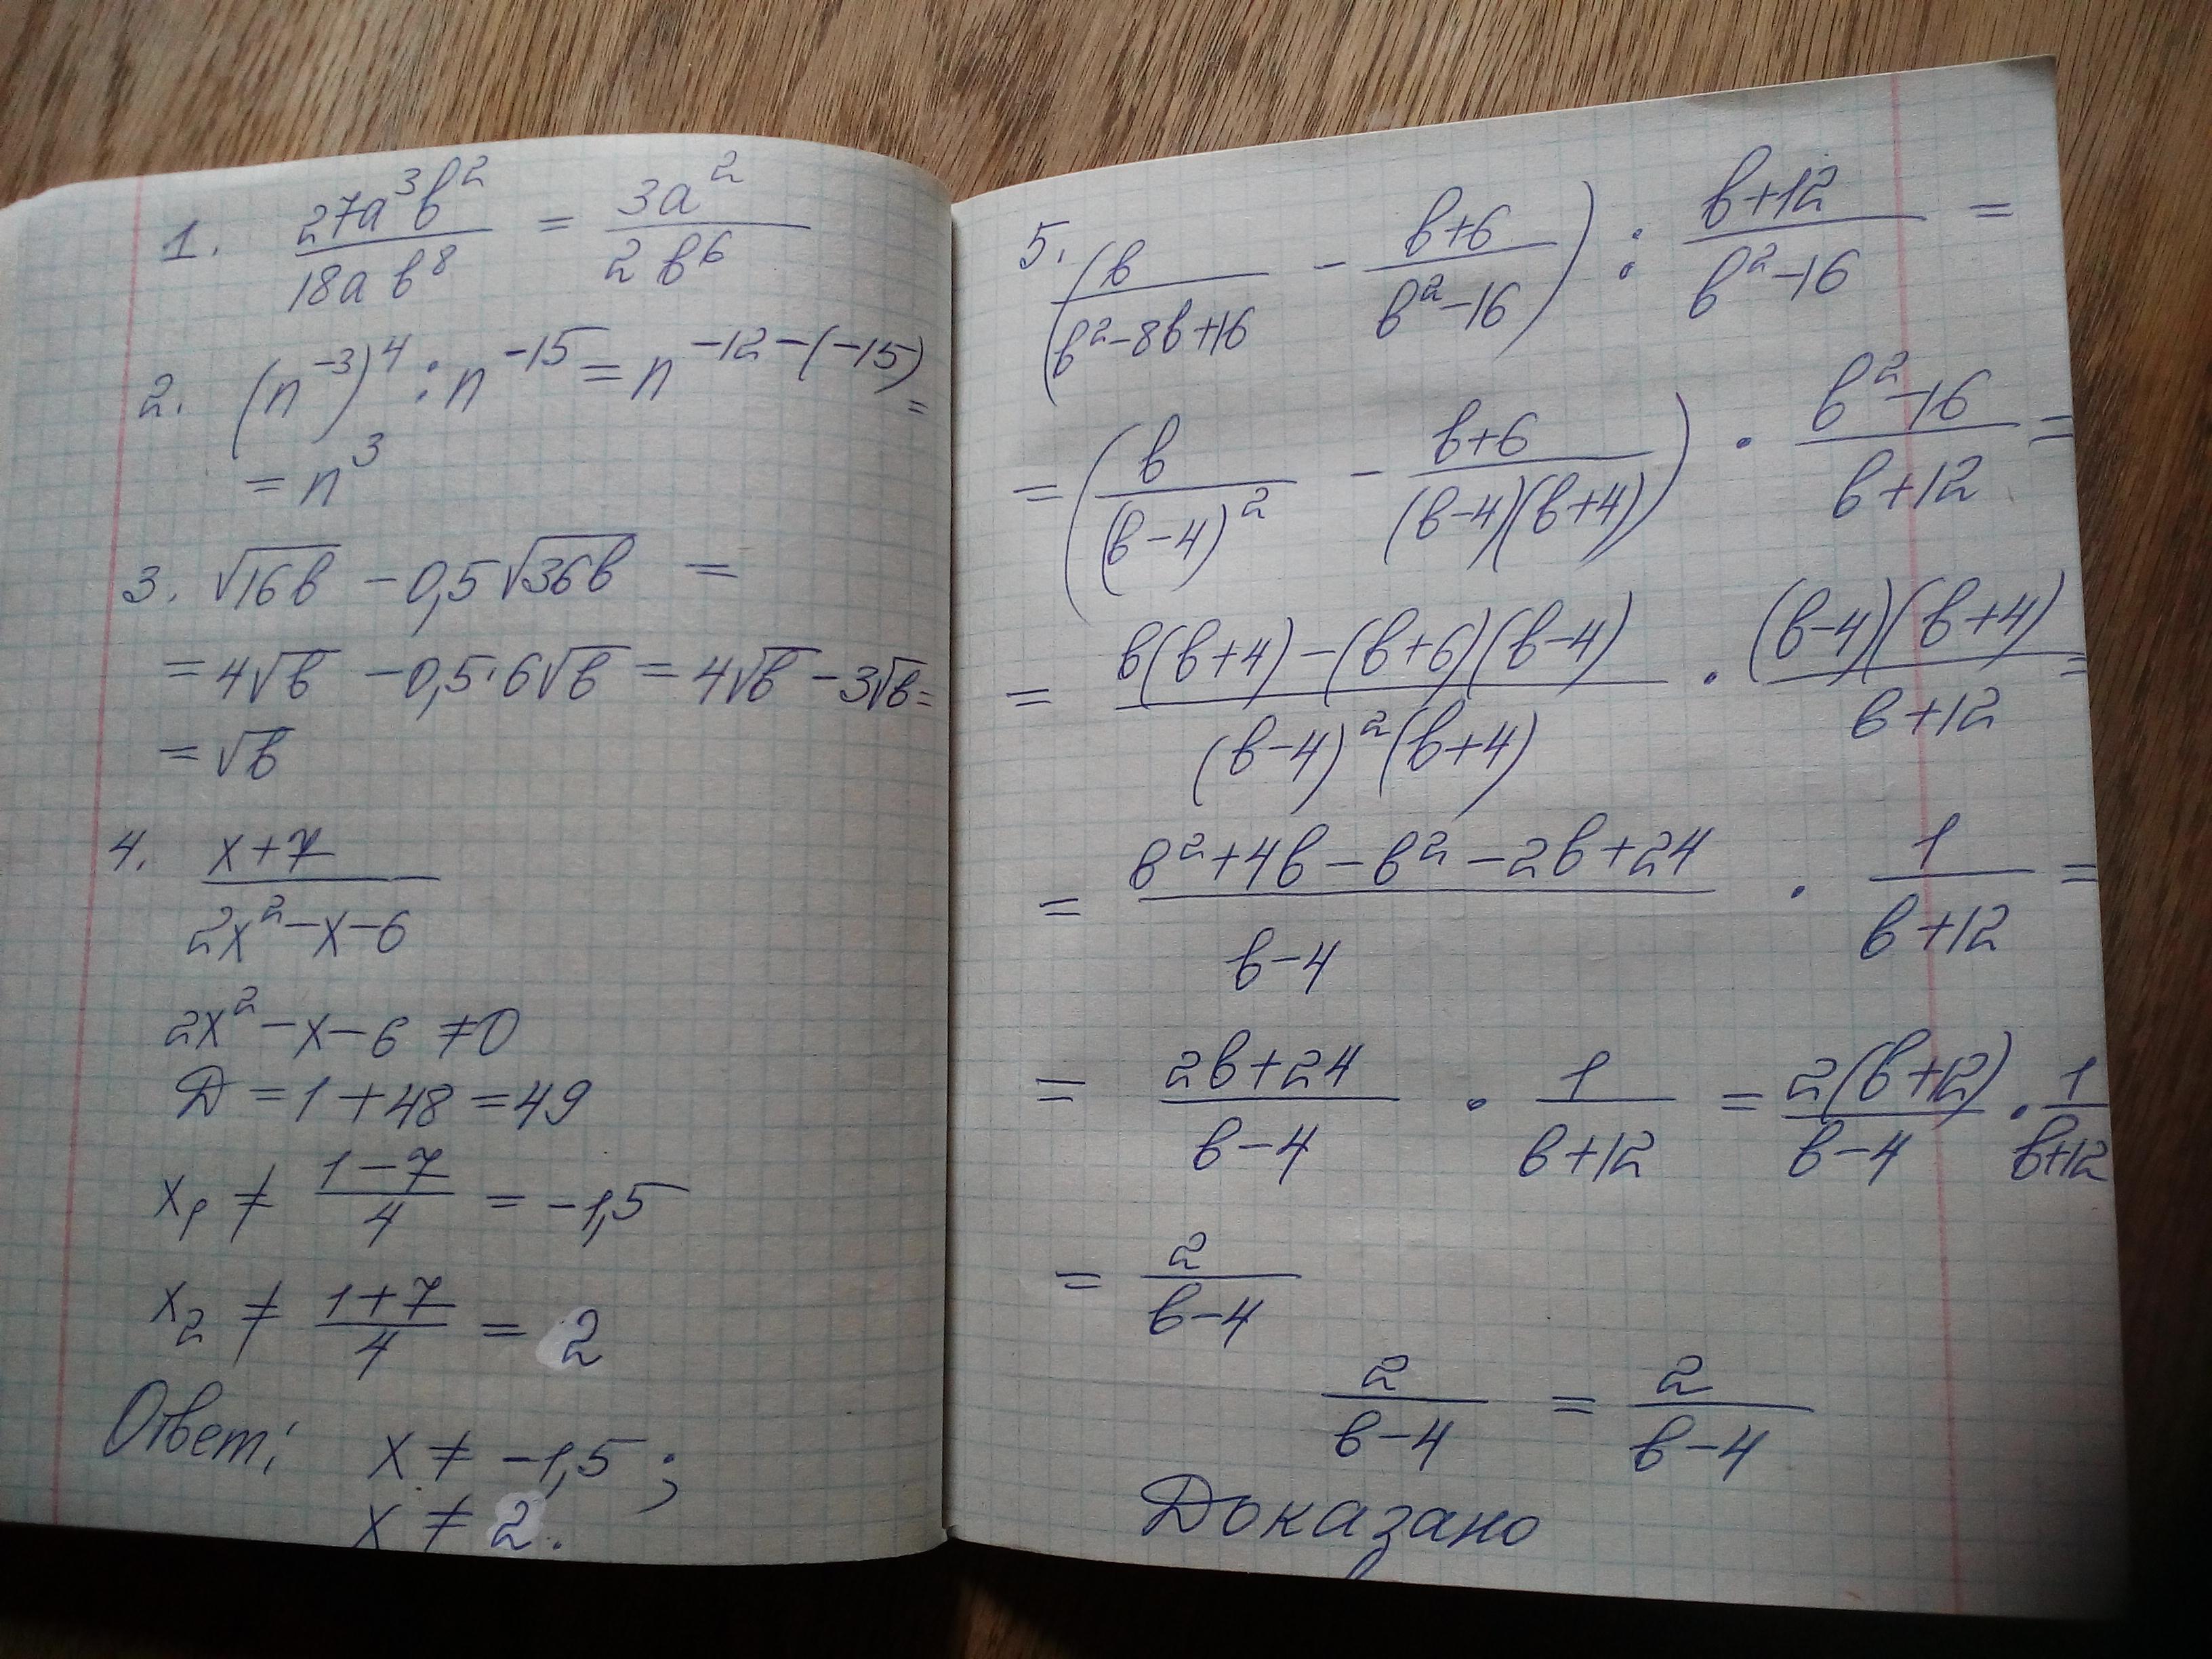 1. 27a³b² / 18ab⁸ = 3a² / 2b⁶
2. (n⁻³)⁴ : n⁻¹⁵ = n⁻¹²⁻⁽⁻¹⁵⁾ =
= n³
3. √16b − 0,5√36b =
= 4√b − 0,5·6√b = 4√b − 3√b =
= √b
4. x+7 / 2x²−x−6
2x²−x−6 ≠ 0
Д = 1 + 48 = 49
x₁ ≠ 1−7 / 4 = −1,5
x₂ ≠ 1+7 / 4 = 2
Ответ: x ≠ −1,5;
x ≠ 2.
5. (b / b²−8b+16 − b+6 / b²−16) : b+12 / b²−16 =
= (b / (b−4)² − b+6 / (b−4)(b+4)) · b²−16 / b+12 =
= b(b+4)−(b+6)(b−4) / (b−4)²(b+4) · (b−4)(b+4) / b+12 =
= b²+4b−b²−2b+24 / b−4 · 1 / b+12 =
= 2b+24 / b−4 · 1 / b+12 = 2(b+12) / b−4 · 1 / b+12
= 2 / b−4
2 / b−4 = 2 / b−4
Доказано